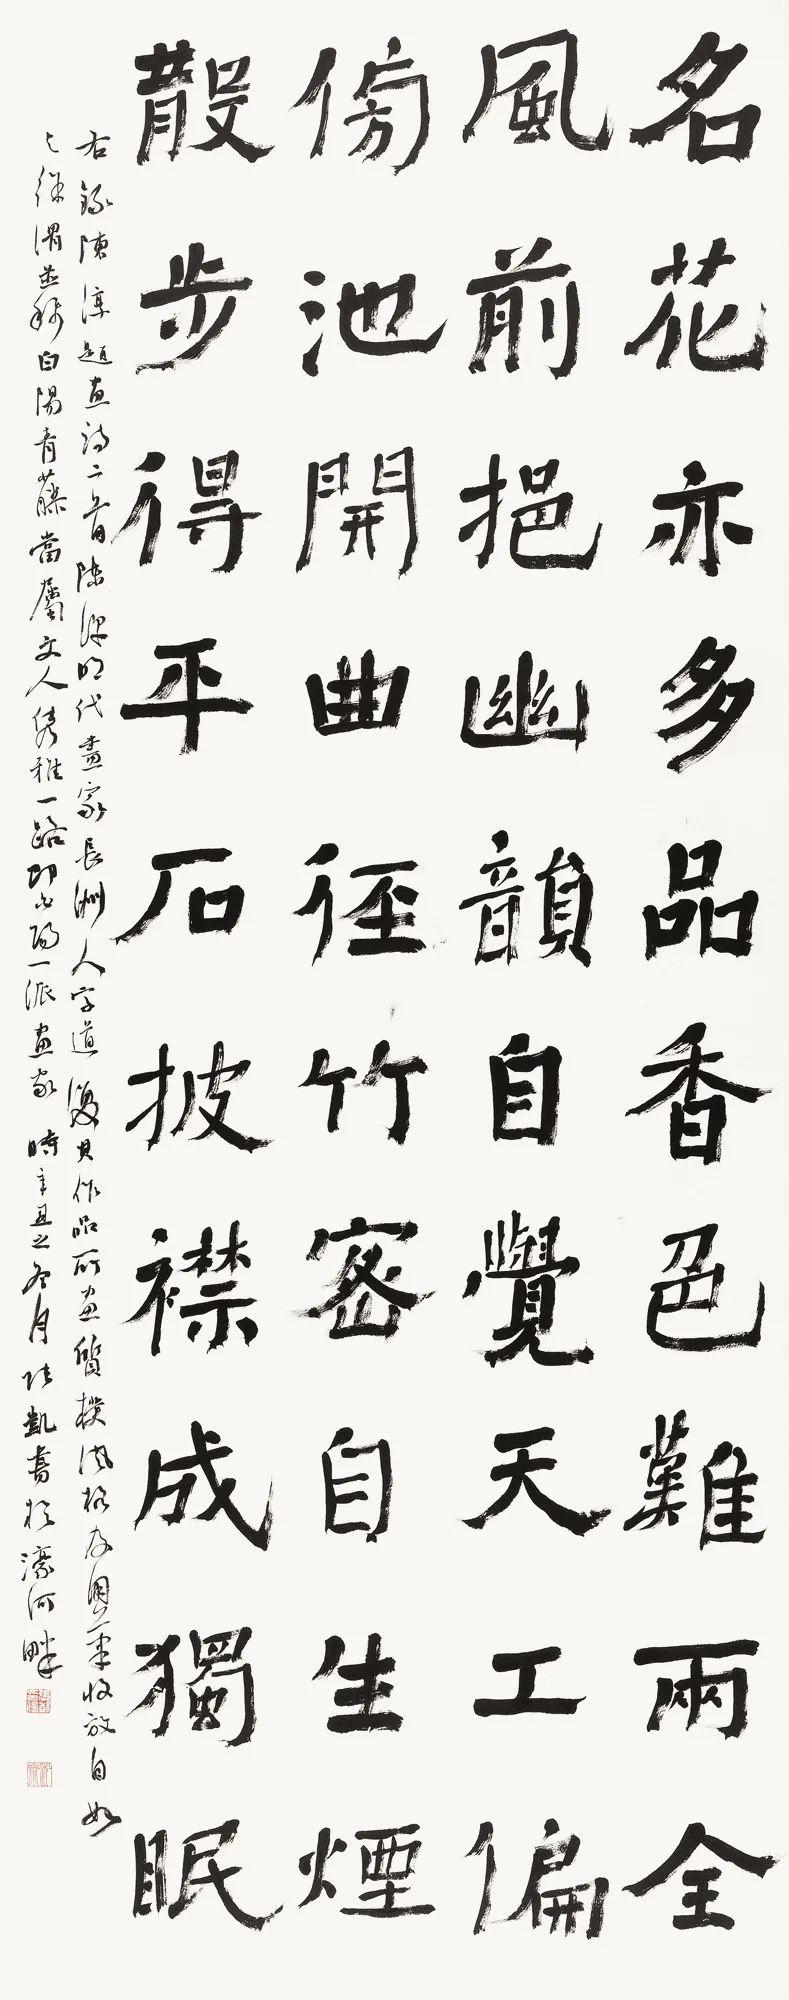 名花亦多品香色難兩全
風前挹幽韻自覺天工偏
傍池開曲徑竹密自生煙
散步得平石披襟成獨眠
右錄陳淳題畫詩二首陳淳明代畫家長洲人字道復其作品所畫質樸風格及用筆收放自如
之徐渭並稱白陽青藤當屬文人雋雅一路即白陽一派畫家時辛丑之冬月張凱書於濠河畔